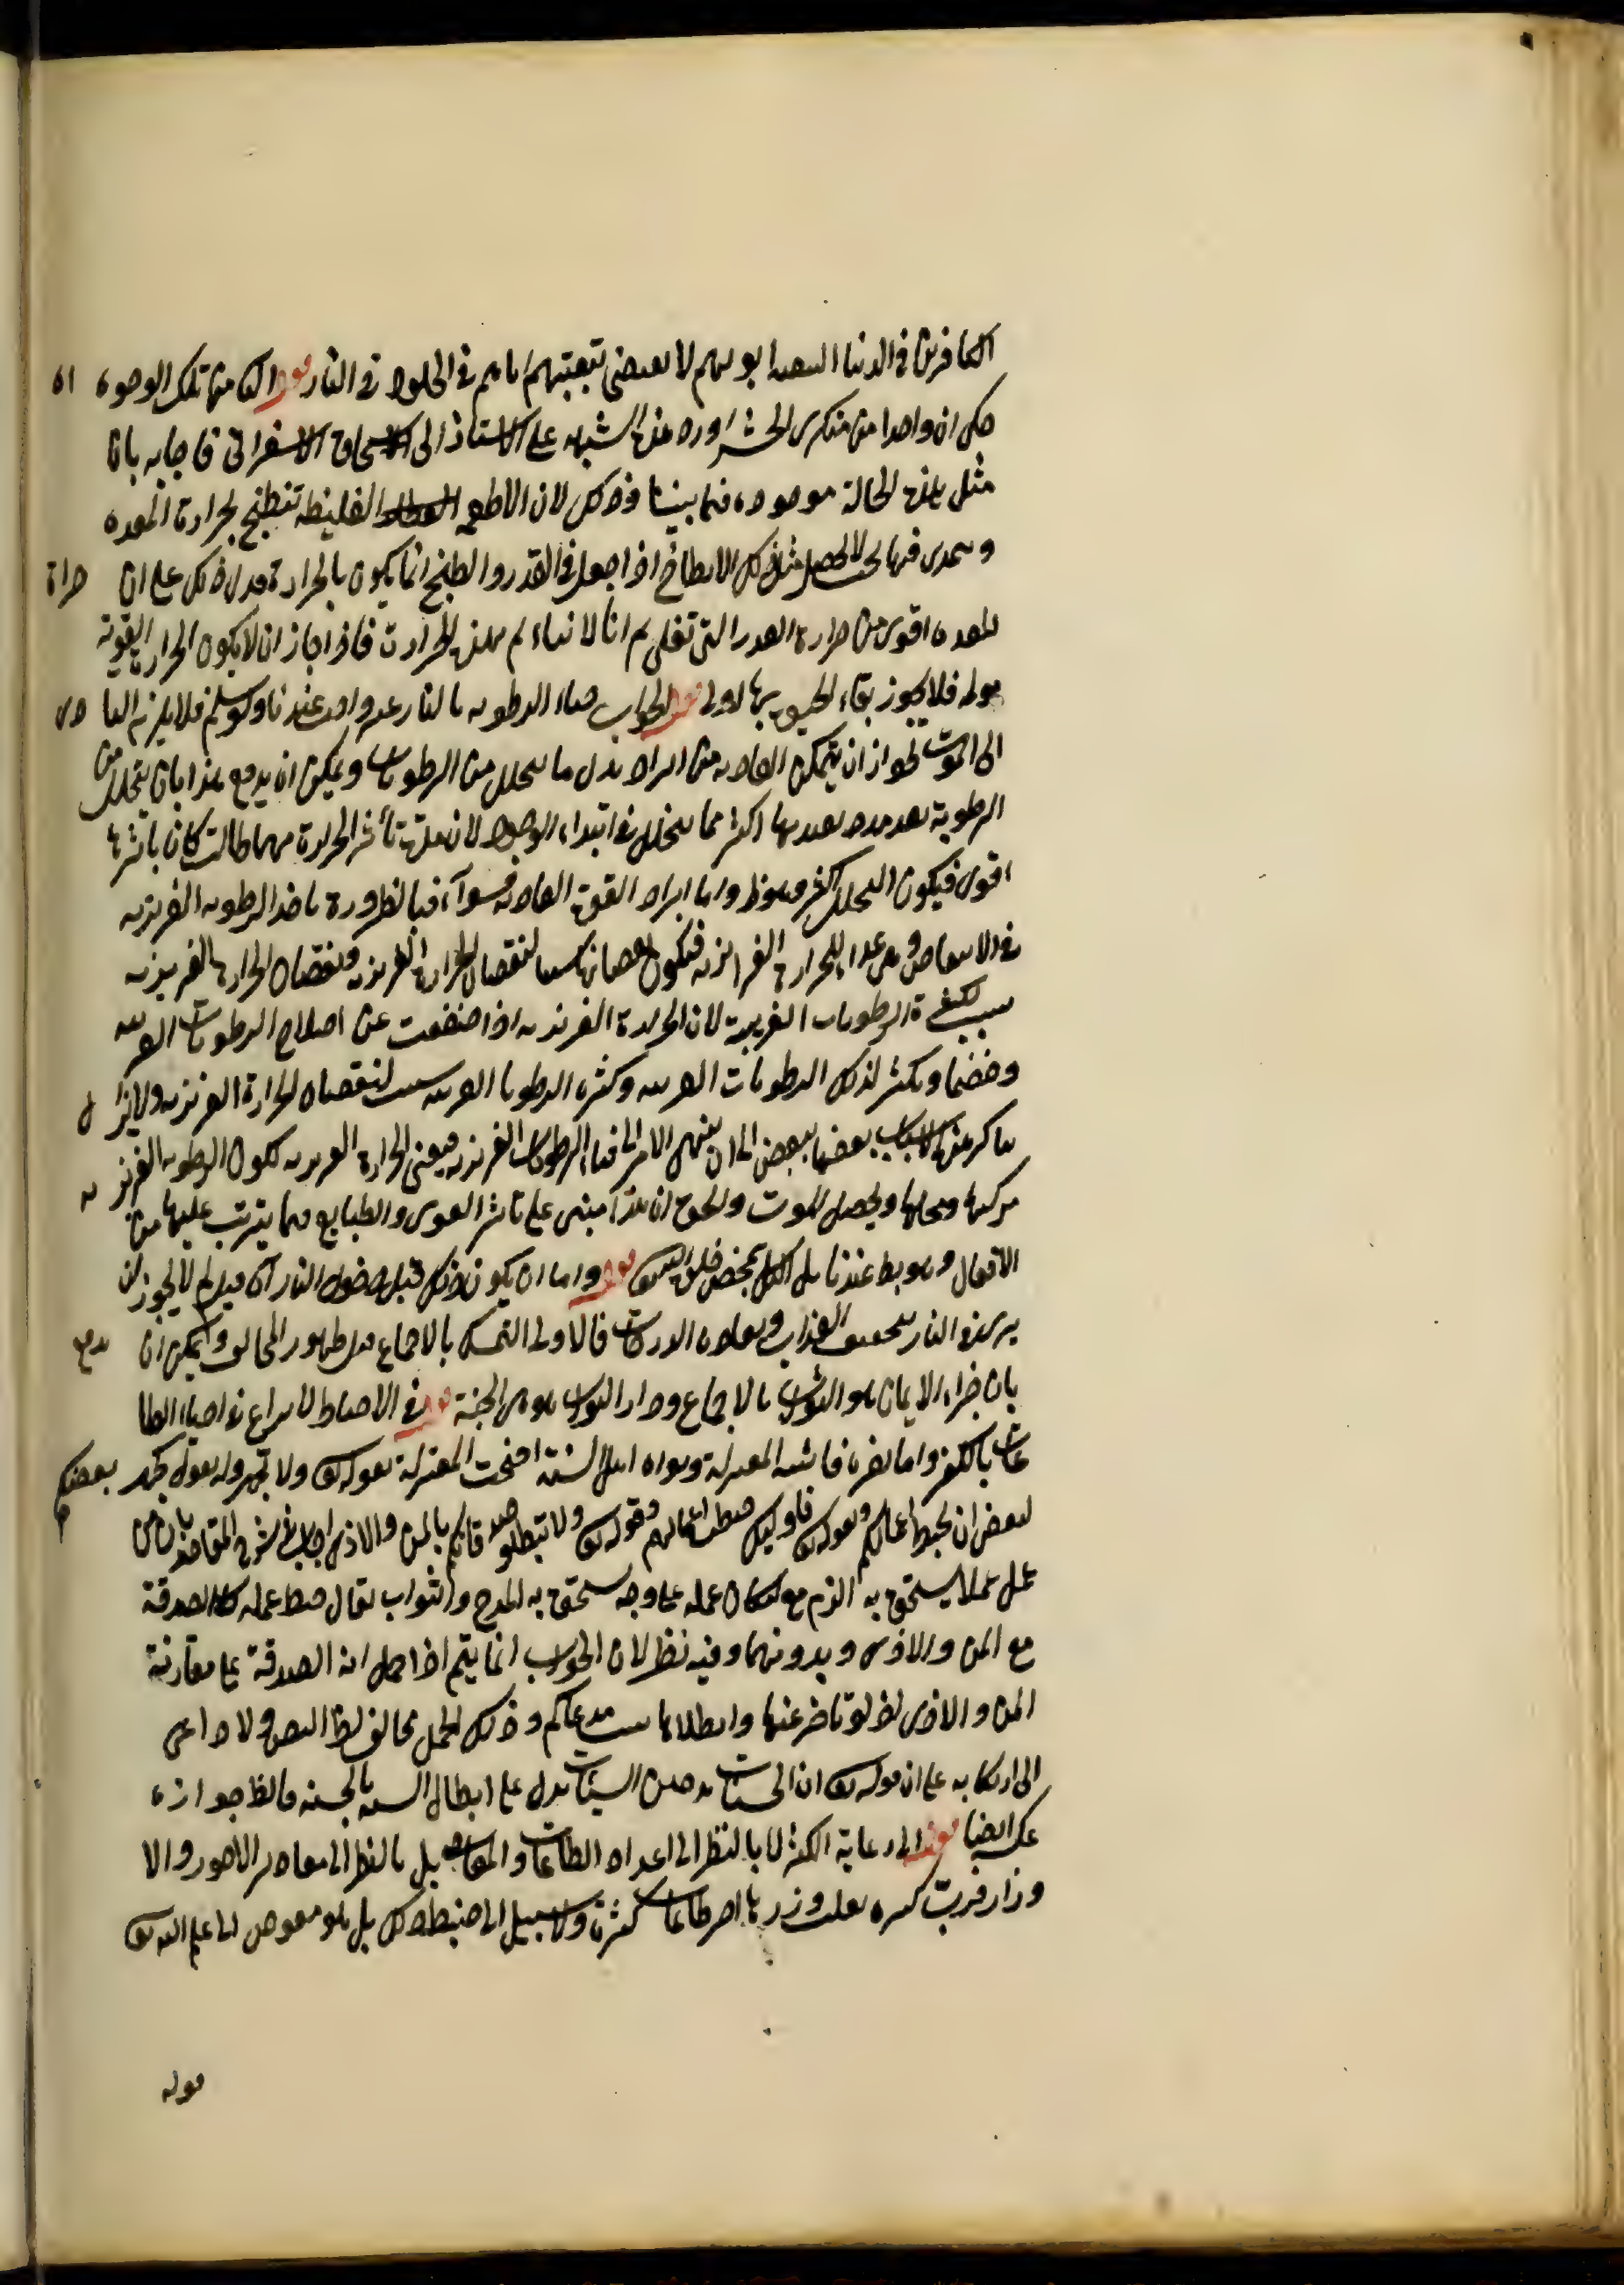 الكافرين في الدنيا السعداء بولهم لا يقتضي تبعيتهم اياهم في الخلود في النار قوله الثامن تلك الوجوه اه
حكى ان واحدا من منكري الحشر اورد هذه الشبهة على الاستاذ ابى اسحاق الاسفرائى فاجابه بان
مثل هذه الحالة موجودة فيما بيننا وذلك لان الاطعمة الغليظة تنطبخ بحرارة المعدة
فيها بحيث لا يحصل مثل ذلك الانطباخ اذا جعل في القدر والطبخ انما يكون بالحرارة فدل ذلك على ان حرارة
المعدة اقوى من حرارة القدر التى تغلى ثم انا لا نتأ لم بهذه الحرارة فاذا جاز ان لا يكون الحرارة القوية
مولمة فلا يجوز بقاء الحيوة بها اولى قوله الجواب فناء الرطوبة بالنار غير واجب عندنا ولو سلم فلا يلزم التادى
الى الموت لجواز ان يتمكن الغاذية من ايراد بدل ما يتحلل من الرطوبات ويمكن ان يدفع هذا بان يتحلل من
الرطوبة بعد مدة يعتد بها اكثر مما يتحلل في ابتداء الوجود لان مدة تأثير الحرارة مهما طالت كان تأثيرها
اقوى فيكون التحلل اكثر وايراد القوة الغاذية سواء فبالضرورة ياخذ الرطوبة الغريزية
في الانتقاص وهى غذاء للحرارة الغريزية فيكون نقصانها سببا لنقصان الحرارة الغريزية ونقصان الحرارة الغريزية
سبب لكثرة الرطوبات الغريبة لان الحرارة الغريزية اذا ضعفت عن اصلاح الرطوبات الغريبة
وهضمها ويكثر لذلك الرطوبات الغريبة وكثرة الرطوبات الغريبة سبب لنقصان الحرارة الغريزية ولا يزال
يتأكد هذه الاسباب بعضها ببعض الى ان ينتهى الامر الى فناء الرطوبات الغريزية فيفنى الحرارة الغريزية لكون الرطوبة الغريزية
مركبها ومحلها ويحصل الموت والحق ان هذا مبنى على تاثير القوى والطبايع فيما يترتب عليها من
الافعال وهو بط عندنا بل الكل بمحض خلق الله تعالى قوله واما ان يكون ذلك قبل دخول النار اى قيل لم لا يجوز ان
يرى في النار بتخفيف العذاب وتفاوت الدركات فالاولى التمسك بالاجماع قبل ظهور المخالف ويمكن ان يدفع
بان جزاء الايمان هو الثواب بالاجماع ودار الثواب هو هى الجنة قوله في الاحباط لا نزاع في احباط الطا
عات بالكفر واما بغيره فاثبته المعتزلة ونفاه اهل السنة احتجت المعتزلة بقوله تعالى ولا تجهروا له بالقول كجهر بعضكم
لبعض ان تحبط اعمالكم وبقوله تعالى فاولئك حبطت اعمالهم وقوله تعالى ولا تبطلوا صدقاتكم بالمن والاذى اجاب في شرح المقاصد بان من
عمل عملا يستحق به الذم مع امكان عمله على وجه يستحق به المدح والثواب يقال حبط عمله كالصدقة
مع المن والاذى وبدونهما وفيه نظر لان الجواب انما يتم اذا حمل الصدقة على مقارنة
المن والاذى اذ لو تاخر عنها وابطلاها ثبت مدعاكم وذلك الحمل مخالف لظ النص ولا داعى
الى ارتكابه على ان قوله تعالى ان الحسنات يذهبن السيئات يدل على ابطال السيئة بالحسنة فالظ جوازه
عكسه ايضا قوله الى رعاية الكثرة لا بالنظر الى اعداد الطاعات والمعاصى بل بالنظر الى مقادير الاجور والا
وزار فرب كبيرة يغلب وزرها اجر طاعات كثيرة ولا سبيل الى ضبط ذلك بل هو مفوض الى علم الله تعالى
قوله